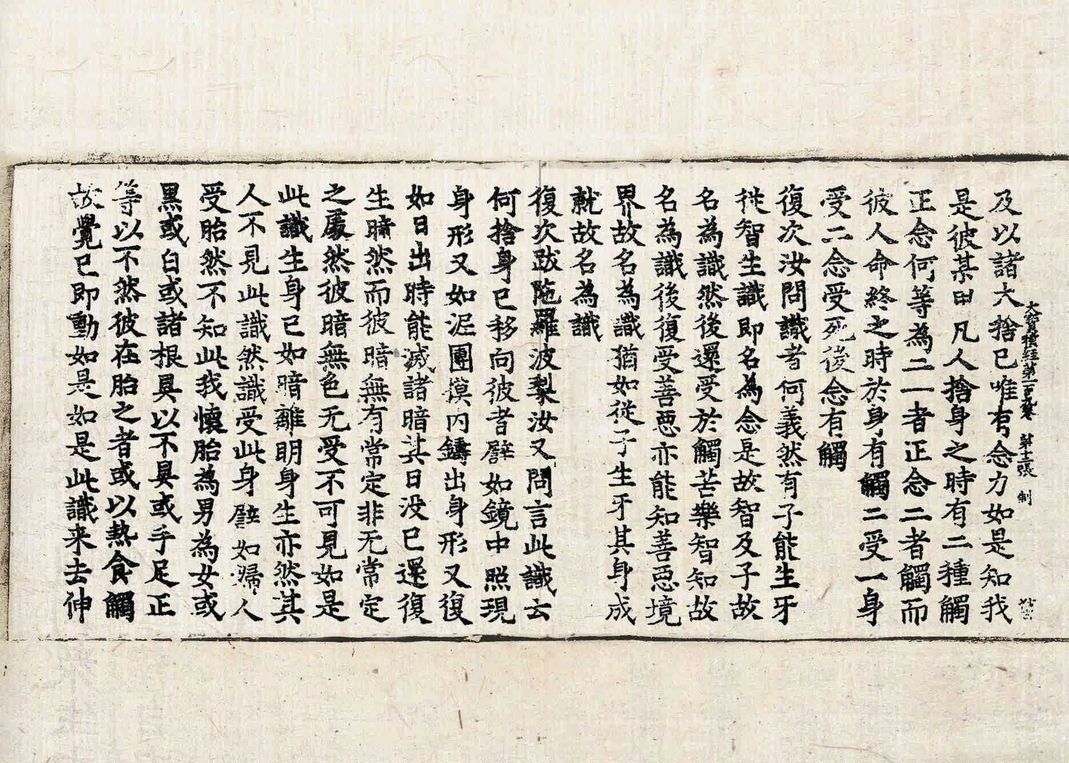 及以諸大捨已唯有念力如是知我
大寶積經第一百九卷 第十三張 制
是彼某甲凡人捨身之時有二種觸
正念何等為二一者正念二者觸而
彼人命終之時於身有觸二受一身
受二念受死後念有觸
復次汝問識者何義然有子能生牙
從智生識即名為念是故智及子故
名為識然後還受於觸苦樂智知故
名為識後復受善惡亦能知善惡境
界故名為識猶如從子生牙其身成
就故名為識
復次跋陁羅波梨汝又問言此識云
何捨身已移向彼者譬如鏡中照現
身形又如泥團摸内鑄出身形又復
如日出時能滅諸暗其日没已還復
生暗然而彼暗無有常定非无常定
之處然彼暗無色无受不可見如是
此識生身已如暗離明身生亦然其
人不見此識然識受此身譬如婦人
受胎然不知此我懷胎為男為女或
黑或白或諸根具以不具或手足正
等以不然彼在胎之者或以熱食觸
故覺已即動如是如是此識来去伸